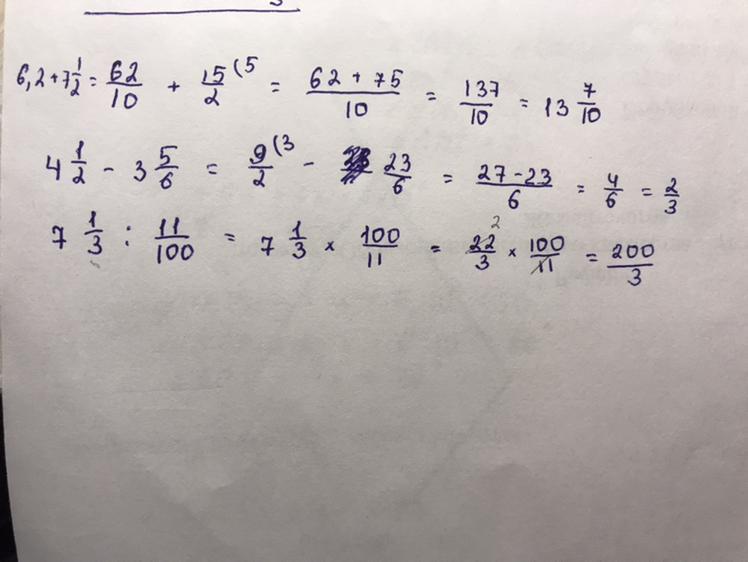 6,2 + 7 1/2 = 62/10 + 15/2 (5 = (62 + 75)/10 = 137/10 = 13 7/10
4 1/2 - 3 5/6 = 9/2 (3 - 23/6 = (27 - 23)/6 = 4/6 = 2/3
7 1/3 : 11/100 = 7 1/3 × 100/11 = 22/3 2 × 100/11 = 200/3